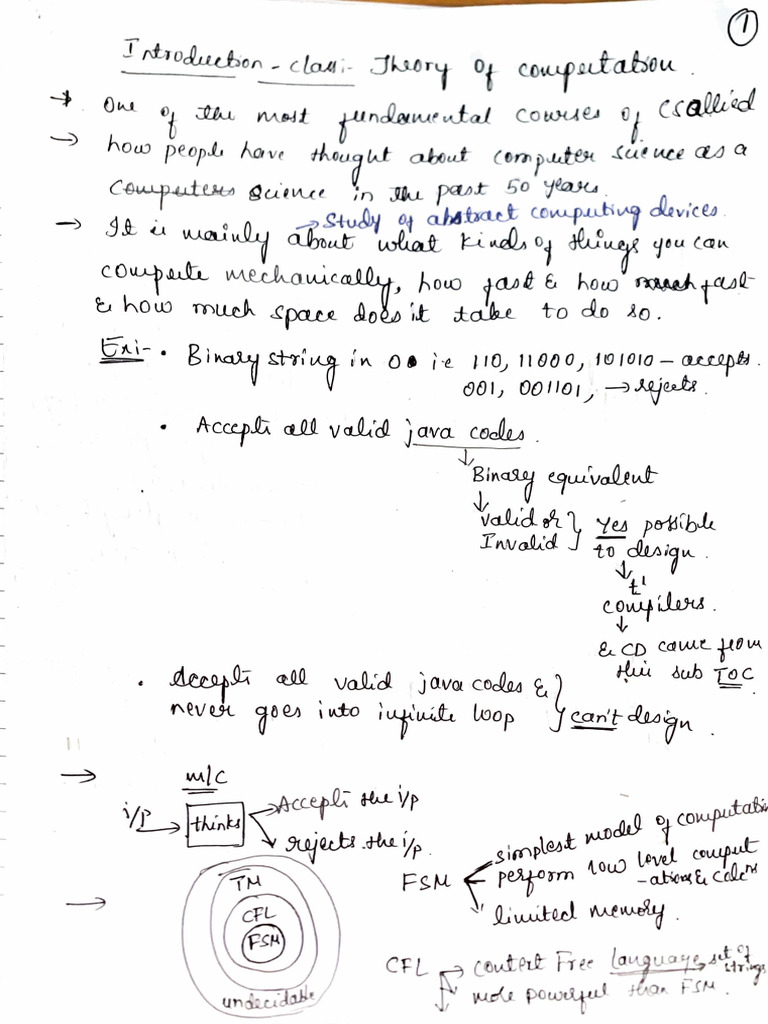 1
Introduction - class:- Theory of computation.
→ One of the most fundamental courses of CS allied
→ how people have thought about computer science as a
Computers Science in the past 50 years.
→ Study of abstract computing devices.
→ It is mainly about what kinds of things you can
compute mechanically, how fast & how fast
& how much space does it take to do so.
Ex:- • Binary string in 0 i.e 110, 11000, 101010 - accepts.
001, 001101, → rejects.
• Accepts all valid java codes.
↓
Binary equivalent
↓
valid or } Yes possible
Invalid } to design.
↓
compilers.
↓
& CD came from
this sub TOC
• Accepts all valid java codes & }
never goes into infinite loop } can't design.
→ m/c
i/p → thinks → Accepts the i/p
→ rejects the i/p.
→ TM
CFL
FSM
undecidable
FSM → simplest model of computation
→ perform low level comput
-ations &
→ limited memory.
CFL → context Free Language → set of strings
→ more powerful than FSM.